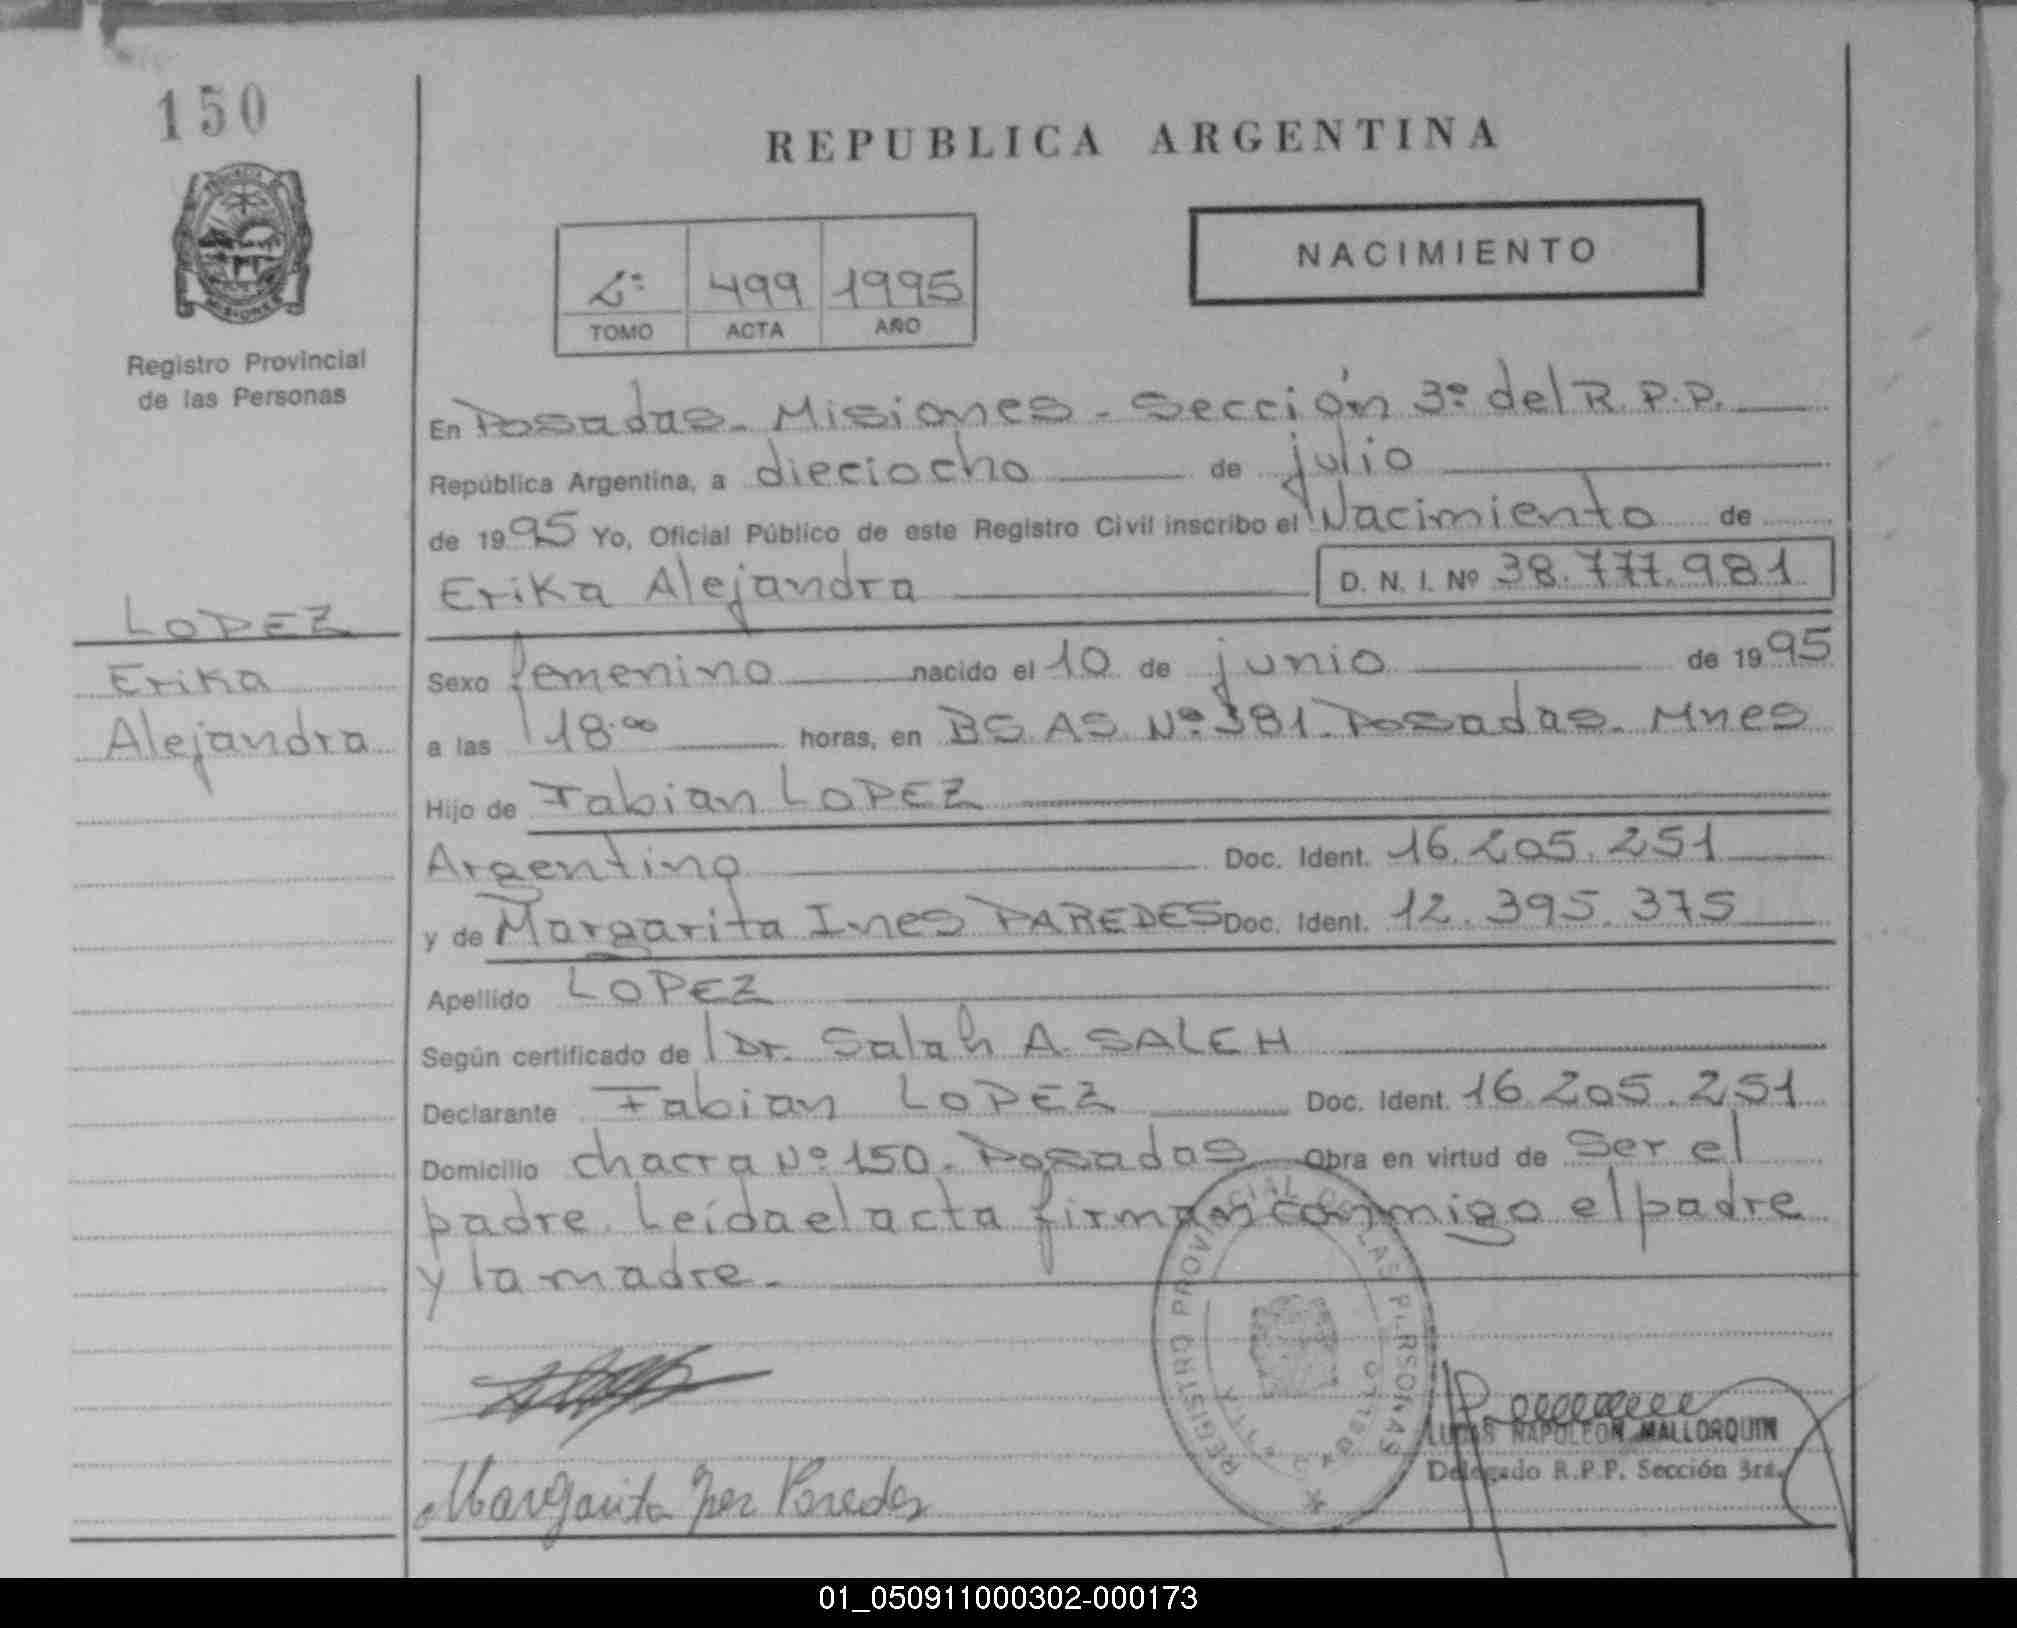 150
REPUBLICA ARGENTINA
NACIMIENTO
2º 499 1995
TOMO ACTA AÑO
Registro Provincial
de las Personas
En Posadas - Misiones - Sección 3º del R.P.P.
República Argentina, a dieciocho de julio
de 1995 Yo, Oficial Público de este Registro Civil inscribo el Nacimiento de
Erika Alejandra D. N. I. Nº 38.777.981
LOPEZ
Erika
Alejandra
Sexo femenino nacido el 10 de junio de 1995
a las 18:00 horas, en BS. AS. Nº 381. Posadas - Mnes
Hijo de Fabian LOPEZ
Argentino Doc. Ident. 16.205.251
y de Margarita Ines PAREDES Doc. Ident. 12.395.375
Apellido LOPEZ
Según certificado de Dr. Salah A. SALEH
Declarante Fabian LOPEZ Doc. Ident. 16.205.251
Domicilio chacra Nº 150. Posadas Obra en virtud de ser el
padre. Leída el acta firman conmigo el padre
y la madre.
REGISTRO PROVINCIAL DE LAS PERSONAS
Margarita Ines Paredes
LUCAS NAPOLEON MALLORQUIN
Delegado R.P.P. Sección 3ra.
01_050911000302-000173